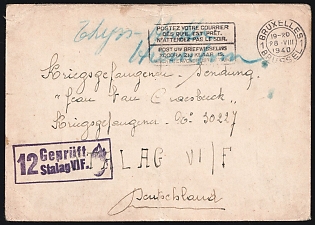 POSTEZ VOTRE COURRIER
DÈS QU'IL EST PRÊT.
N'ATTENDEZ PAS LE SOIR.
POST UW BRIEFWISSELING
BRUXELLES
19-20
28-VIII
1940
BRUSSEL
Kriegsgefangenen-Sendung
"Jean Van
Kriegsgefangener No 30227
12 Geprüft
Stalag VI F.
LAG VI/F
Deutschland